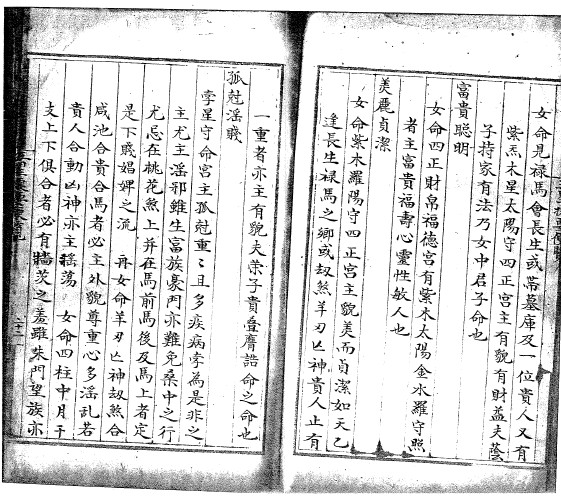 女命見祿馬會長生或帶墓庫及一位貴人又有
紫炁木星太陽守四正宮主有貌有財益夫蔭
子持家有法乃女中君子命也
富貴聰明
女命四正財帛福德宮有紫木太陽金水羅守照
者主富貴福壽心靈性敏人也
美麗貞潔
女命紫木羅陽守四正宮主貌美而貞潔如天乙
逢長生祿馬之鄉或刼煞羊刃亡神貴人止有
一重者亦主有貌夫榮子貴疊膺誥命之命也
孤尅淫賤
孛星守命宮主孤尅重〻且多疾病孛為是非之
主尤主淫邪雖生富族豪門亦難免桑中之行
尤忌在桃花煞上並在馬前馬後及馬上者定
是下賤娼婢之流 再女命羊刃亡神刼煞合
咸池合貴合馬者必主外貌尊重心多淫乱若
貴人合動凶神亦主揺蕩 女命四柱中月干
支上下俱合者必有墻茨之羞雖朱門望族亦